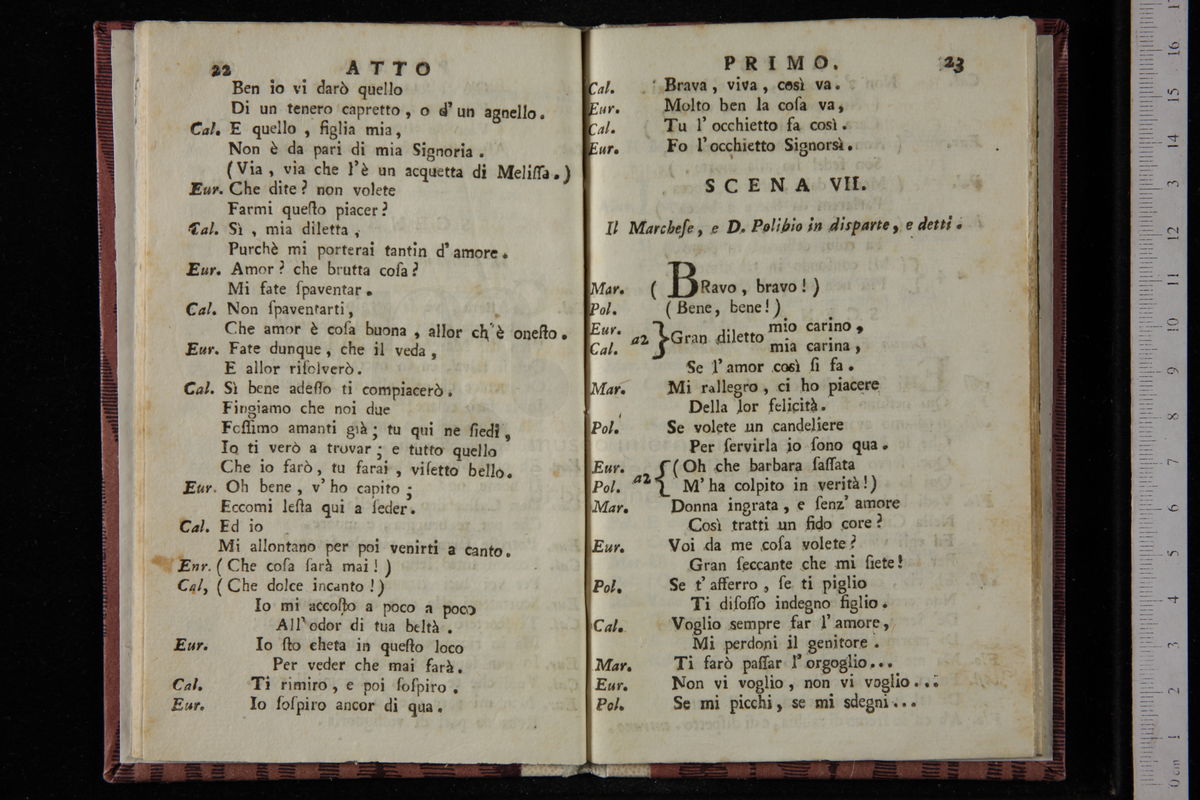 22 ATTO
Ben io vi darò quello
Di un tenero capretto, o d' un agnello.
Cal. E quello, figlia mia,
Non è da pari di mia Signoria.
(Via, via che l'è un acquetta di Meliſſa.)
Eur. Che dite? non volete
Farmi queſto piacer?
Cal. Sì, mia diletta,
Purchè mi porterai tantin d' amore.
Eur. Amor? che brutta coſa?
Mi fate ſpaventar.
Cal. Non ſpaventarti,
Che amor è coſa buona, allor ch' è oneſto.
Eur. Fate dunque, che il veda,
E allor riſolverò.
Cal. Sì bene adeſſo ti compiacerò.
Fingiamo che noi due
Foſſimo amanti già; tu qui ne ſiedi,
Io ti verò a trovar; e tutto quello
Che io farò, tu farai, viſetto bello.
Eur. Oh bene, v' ho capito;
Eccomi leſta qui a ſeder.
Cal. Ed io
Mi allontano per poi venirti a canto.
Enr. (Che coſa ſarà mai!)
Cal, (Che dolce incanto!)
Io mi accoſto a poco a poco
All' odor di tua beltà.
Eur. Io ſto cheta in queſto loco
Per veder che mai farà.
Cal. Ti rimiro, e poi ſoſpiro.
Eur. Io ſoſpiro ancor di qua.
PRIMO. 23
Cal. Brava, viva, così va.
Eur. Molto ben la coſa va,
Cal. Tu l' occhietto fa così.
Eur. Fo l' occhietto Signorsì.
SCENA VII.
Il Marcheſe, e D. Polibio in disparte, e detti.
Mar. (BRavo, bravo!)
Pol. (Bene, bene!)
Eur. Cal. a2 } Gran diletto mio carino, mia carina,
Se l' amor così ſi fa.
Mar. Mi rallegro, ci ho piacere
Della lor felicità.
Pol. Se volete un candeliere
Per ſervirla io ſono qua.
Eur. Pol. a2 { (Oh che barbara ſaſſata
M' ha colpito in verità!)
Mar. Donna ingrata, e ſenz' amore
Così tratti un fido core?
Eur. Voi da me coſa volete?
Gran ſeccante che mi ſiete!
Pol. Se t' afferro, ſe ti piglio
Ti diſoſſo indegno figlio.
Cal. Voglio sempre far l' amore,
Mi perdoni il genitore.
Mar. Ti farò paſſar l' orgoglio...
Eur. Non vi voglio, non vi voglio...
Pol. Se mi picchi, se mi sdegni...
0 cm 1 2 3 4 5 6 7 8 9 10 11 12 13 14 15 16